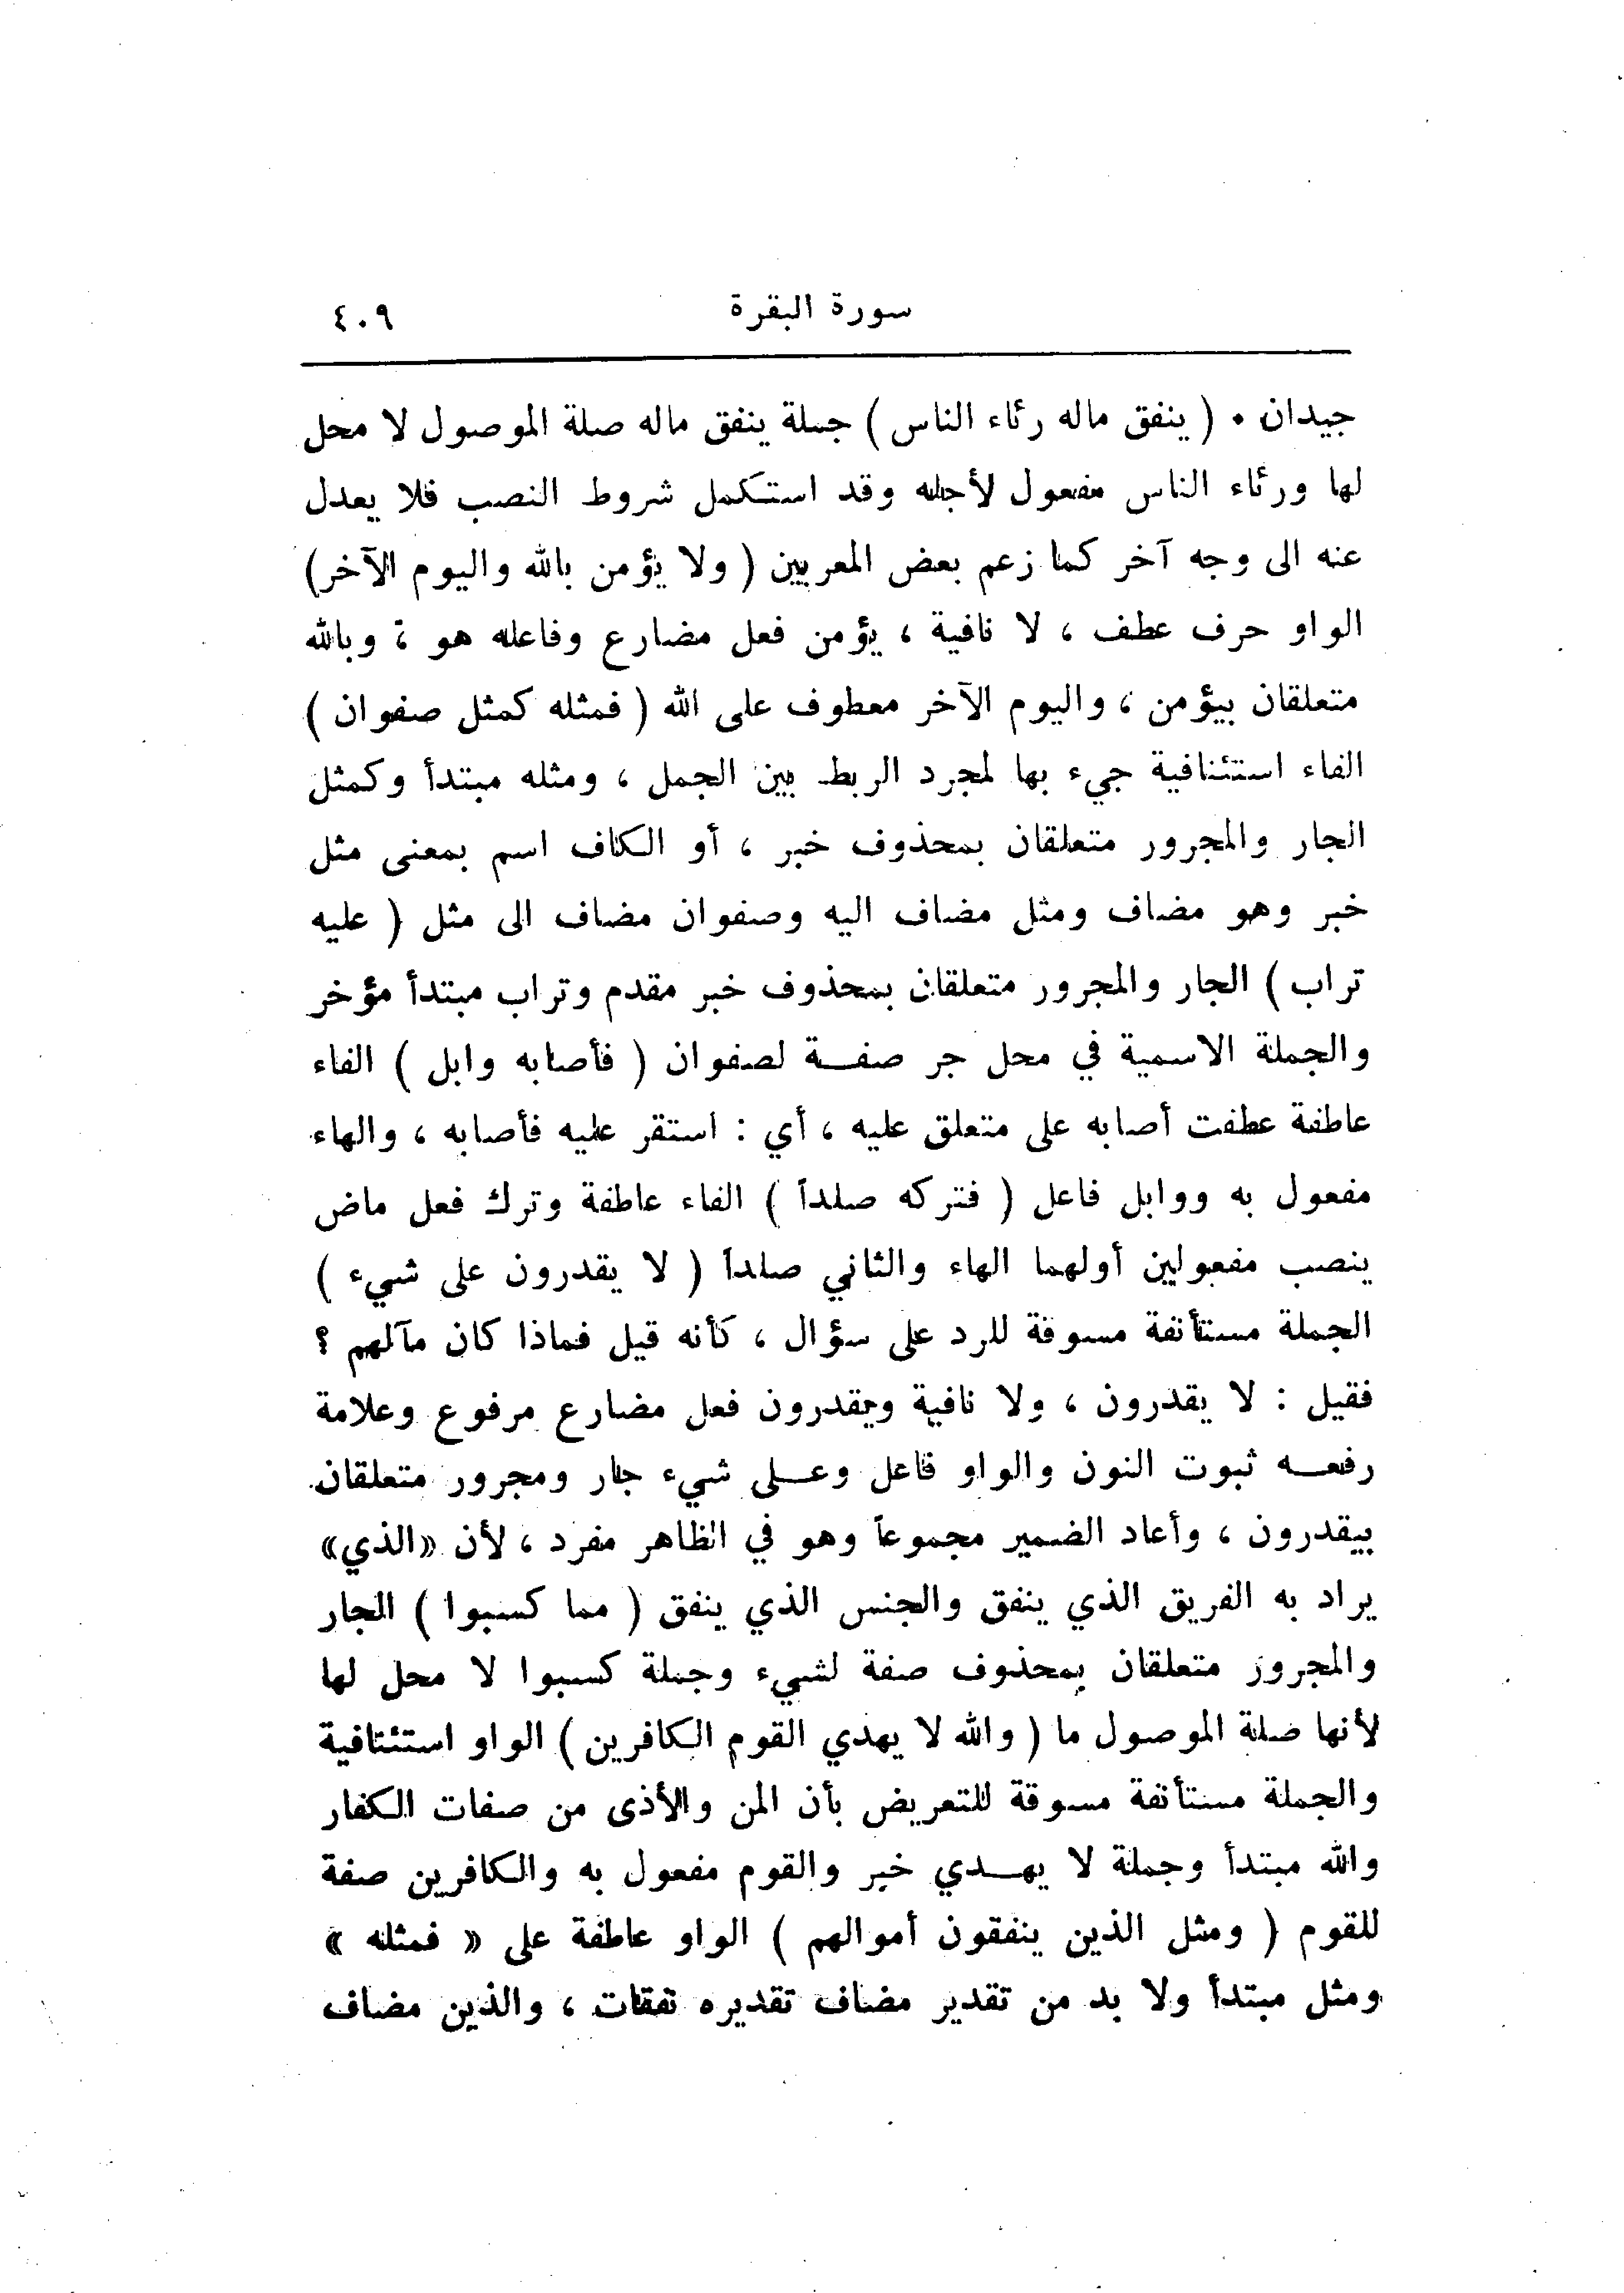 سورة البقرة ٤٠٩
جيدان ٠ ( ينفق ماله رئاء الناس ) جملة ينفق ماله صلة الموصول لا محل
لها ورئاء الناس مفعول لأجله وقد استكمل شروط النصب فلا يعدل
عنه الى وجه آخر كما زعم بعض المعربين ( ولا يؤمن بالله واليوم الآخر)
الواو حرف عطف ، لا نافية ، يؤمن فعل مضارع وفاعله هو ، وبالله
متعلقان بيؤمن ، واليوم الآخر معطوف على الله ( فمثله كمثل صفوان )
الفاء استئنافية جيء بها لمجرد الربط بين الجمل ، ومثله مبتدأ وكمثل
الجار والمجرور متعلقان بمحذوف خبر ، أو الكاف اسم بمعنى مثل
خبر وهو مضاف ومثل مضاف اليه وصفوان مضاف الى مثل ( عليه
تراب ) الجار والمجرور متعلقان بمحذوف خبر مقدم وتراب مبتدأ مؤخر
والجملة الاسمية في محل جر صفة لصفوان ( فأصابه وابل ) الفاء
عاطفة عطفت أصابه على متعلق عليه ، أي : استقر عليه فأصابه ، والهاء
مفعول به ووابل فاعل ( فتركه صلداً ) الفاء عاطفة وترك فعل ماض
ينصب مفعولين أولهما الهاء والثاني صلداً ( لا يقدرون على شيء )
الجملة مستأنفة مسوقة للرد على سؤال ، كأنه قيل فماذا كان مآلهم ؟
فقيل : لا يقدرون ، ولا نافية ويقدرون فعل مضارع مرفوع وعلامة
رفعه ثبوت النون والواو فاعل وعلى شيء جار ومجرور متعلقان
بيقدرون ، وأعاد الضمير مجموعاً وهو في الظاهر مفرد ، لأن «الذي»
يراد به الفريق الذي ينفق والجنس الذي ينفق ( مما كسبوا ) الجار
والمجرور متعلقان بمحذوف صفة لشيء وجملة كسبوا لا محل لها
لأنها صلة الموصول ما ( والله لا يهدي القوم الكافرين ) الواو استئنافية
والجملة مستأنفة مسوقة للتعريض بأن المن والأذى من صفات الكفار
والله مبتدأ وجملة لا يهدي خبر والقوم مفعول به والكافرين صفة
للقوم ( ومثل الذين ينفقون أموالهم ) الواو عاطفة على « فمثله »
ومثل مبتدأ ولا بد من تقدير مضاف تقديره نفقات ، والذين مضاف